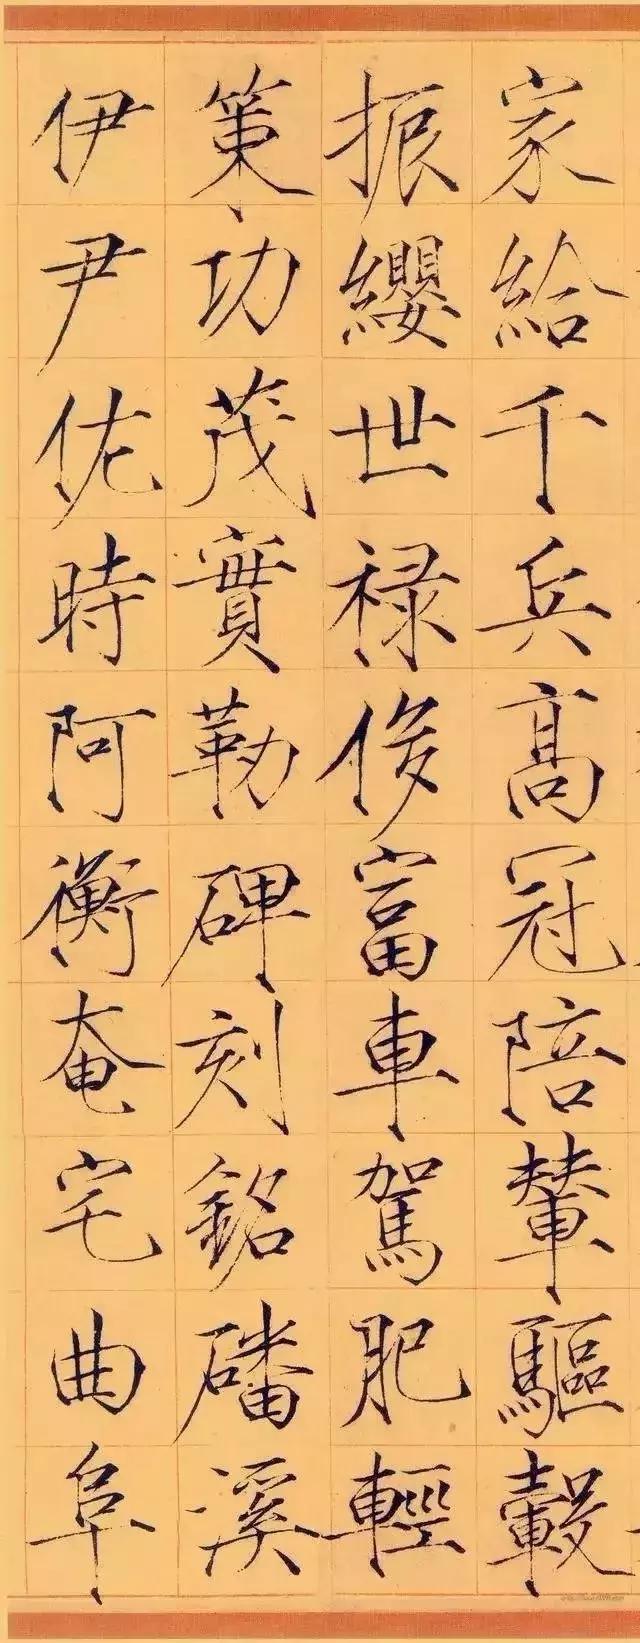 家給千兵高冠陪輦驅轂
振纓世祿侈富車駕肥輕
策功茂實勒碑刻銘磻溪
伊尹佐時阿衡奄宅曲阜